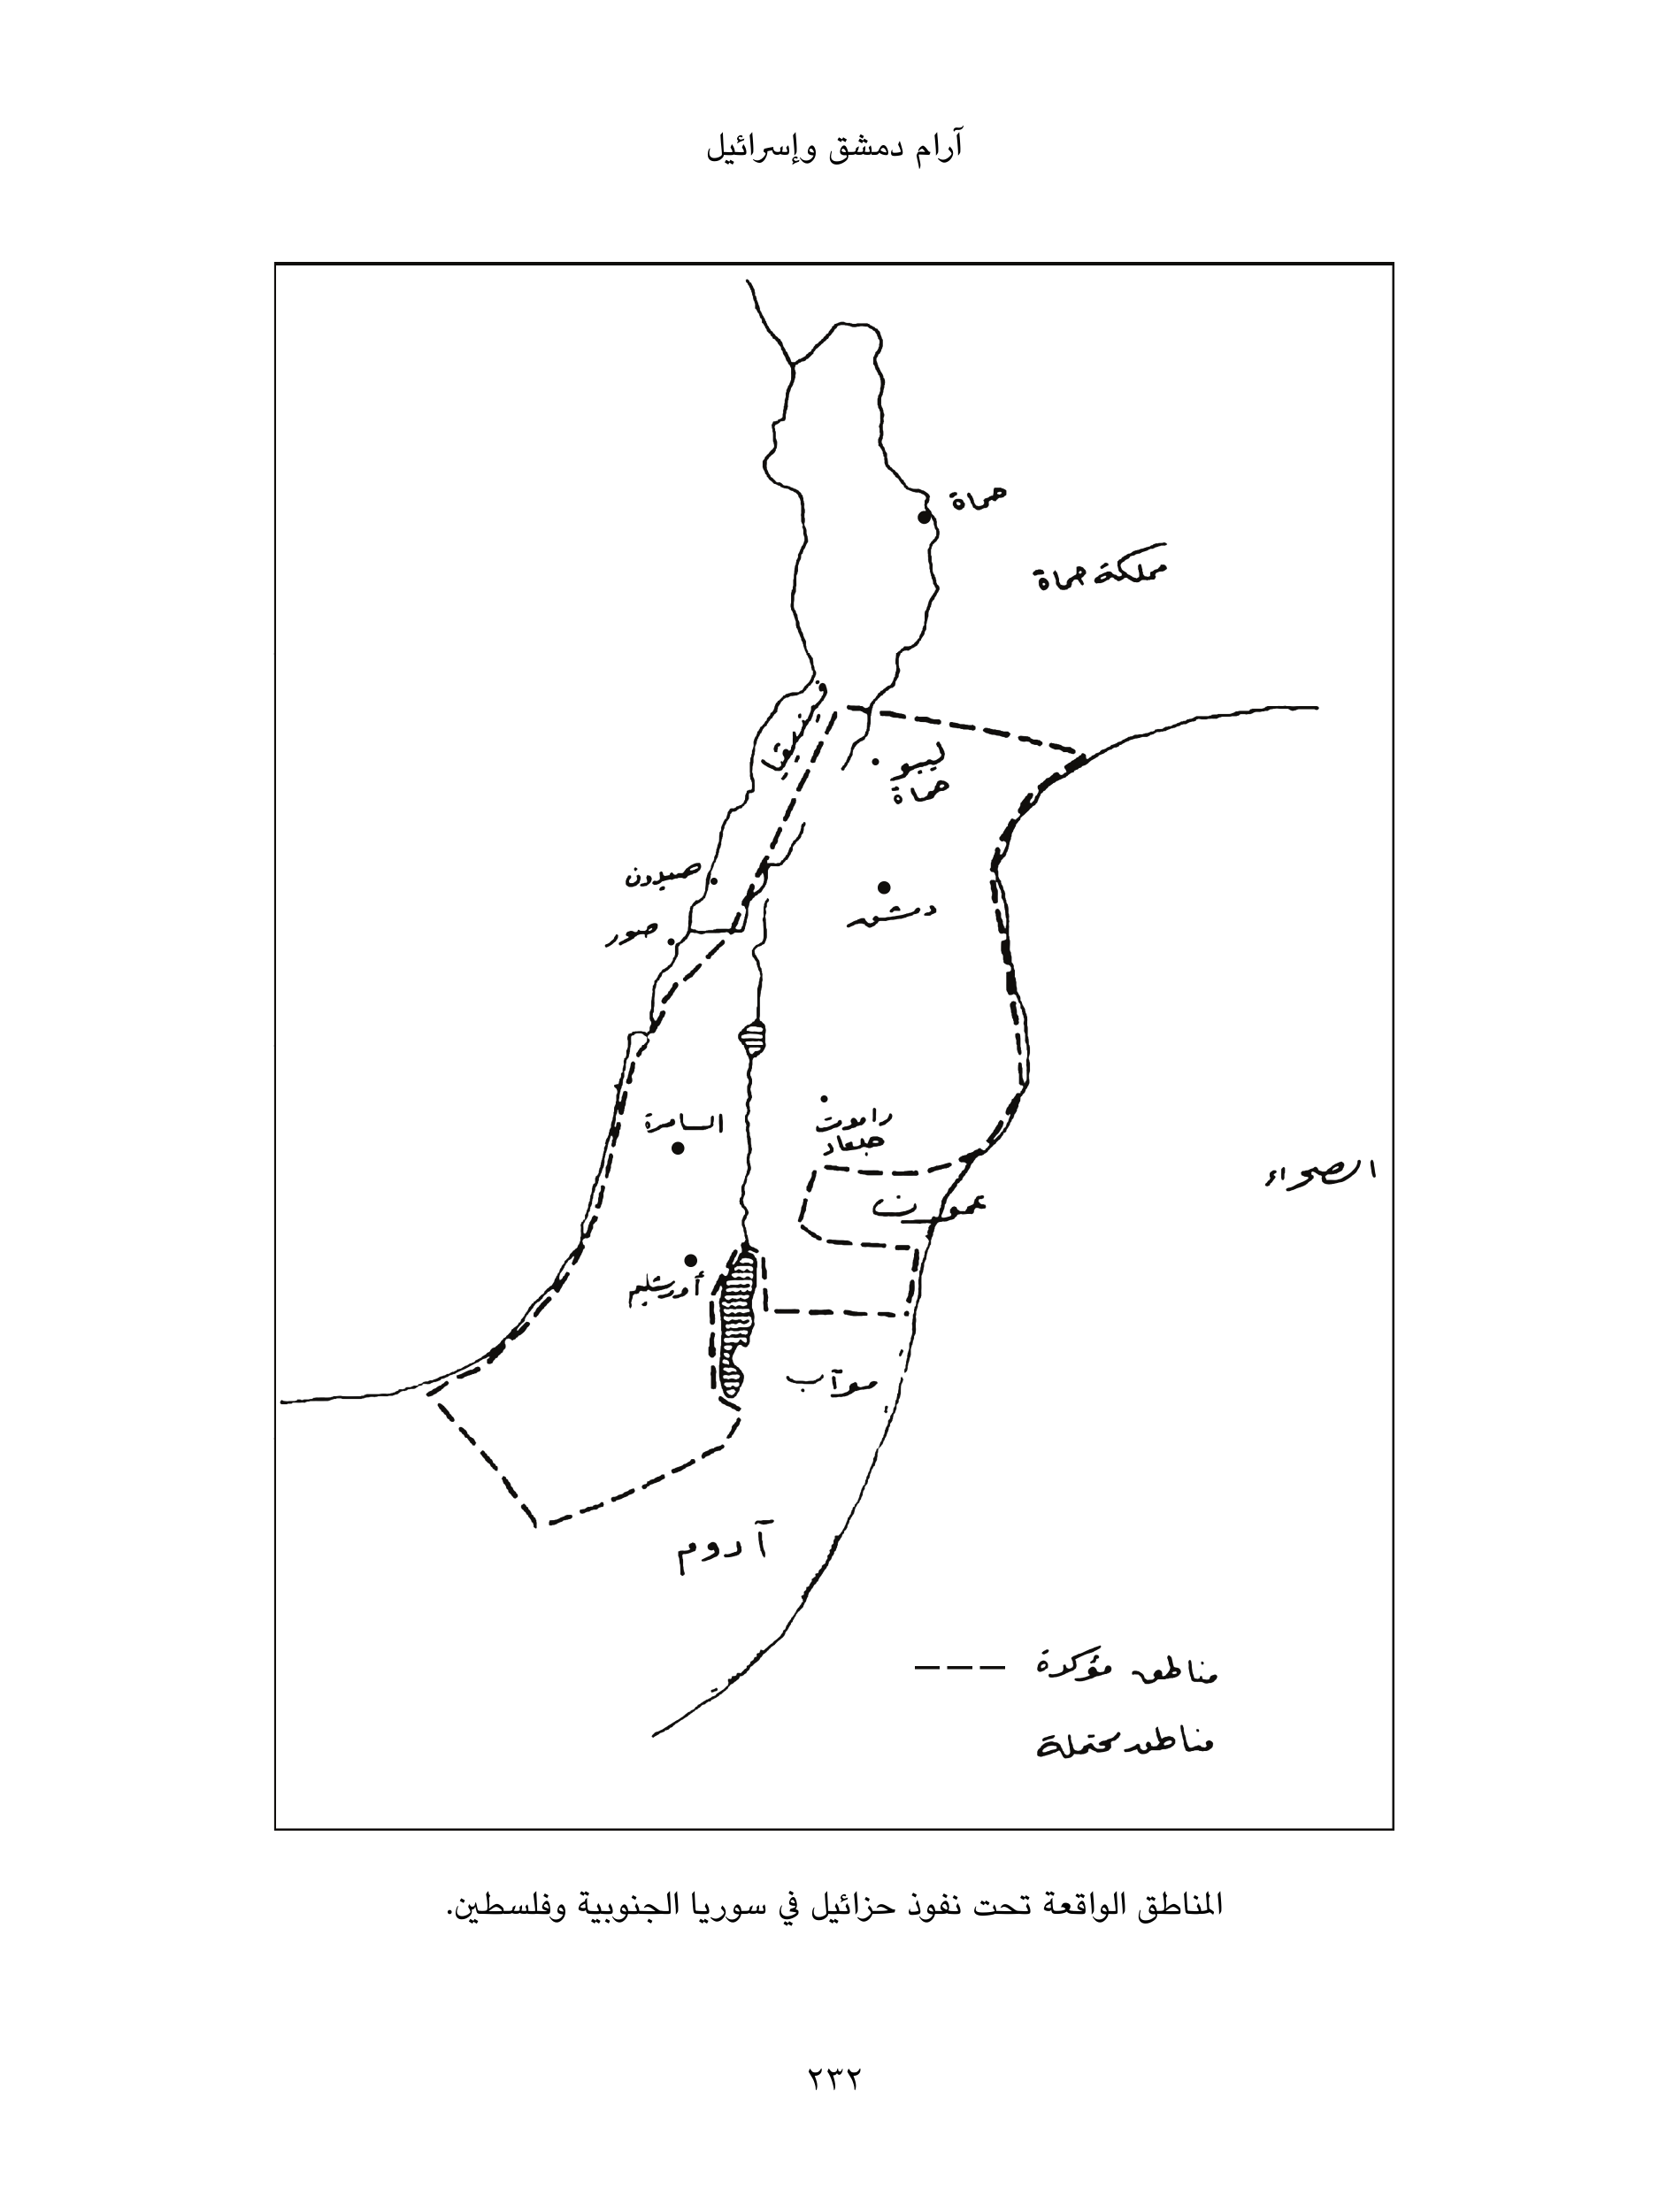 آرام دمشق وإسرائيل
حماة
مملكة حماة
ليبو
حماة
صيدون
دمشق
صور
السامرة
راموت
جلعاد
الصحراء
عمون
أورشليم
موآب
آدوم
مناطق مؤكدة
مناطق محتملة
المناطق الواقعة تحت نفوذ حزائيل في سوريا الجنوبية وفلسطين.
٢٣٢